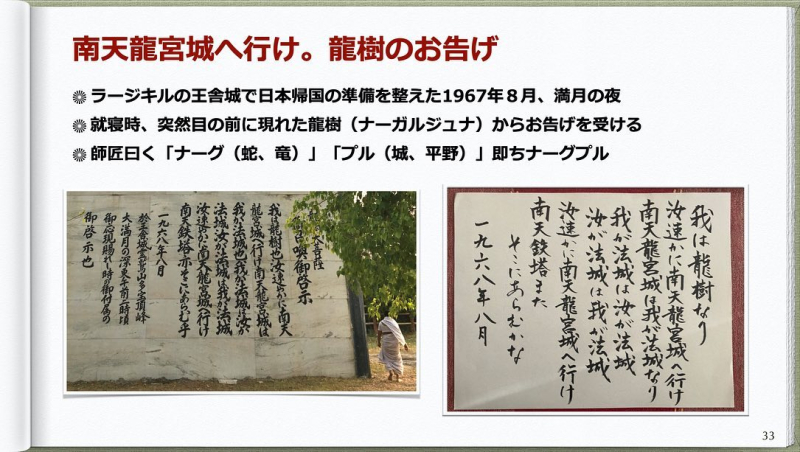 南天龍宮城へ行け。龍樹のお告げ
ラージキルの王舎城で日本帰国の準備を整えた1967年８月、満月の夜
就寝時、突然目の前に現れた龍樹（ナーガルジュナ）からお告げを受ける
師匠曰く「ナーグ（蛇、竜）」「プル（城、平野）」即ちナーグプル
御啓示
我は龍樹也汝速かに南天
龍宮城へ行け南天龍宮城は
我が法城也我が法城は汝が
法城汝が法城は我が法城
汝速かに南天龍宮城へ行け
南天鉄塔亦そこにあらむ乎
一九六八年八月
於王舎城霊鷲山多宝頂峰
大満月の深更午前二時頃
御啓示也
我は龍樹なり
汝速かに南天龍宮城へ行け
南天龍宮城は我が法城なり
我が法城は汝が法城
汝が法城は我が法城
汝速かに南天龍宮城へ行け
南天鉄塔また
そこにあらむかな
一九六八年八月
33